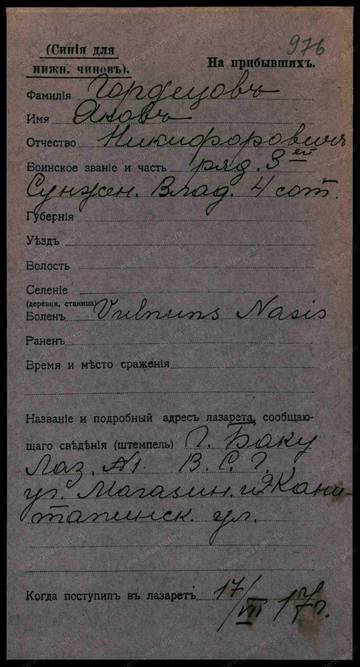 976
(Синія для
нижн. чиновъ).
На прибывшихъ.
Фамилія Гордецовъ
Имя Яковъ
Отчество Никифоровичъ
Воинское званіе и часть ряд. 3ей
Сунжен. Влад. 4 сот.
Губернія
Уѣздъ
Волость
Селеніе
(деревня, станица)
Боленъ Vulnuns Nasis
Раненъ
Время и мѣсто сраженія
Названіе и подробный адресъ лазарета, сообщаю-
щаго свѣдѣнія (штемпель) Г. Баку
Лаз. №1 В. С. Г.
уг. Магазин. и Кани-
тапинск. ул.
Когда поступилъ въ лазаретъ 17/VII 17г.